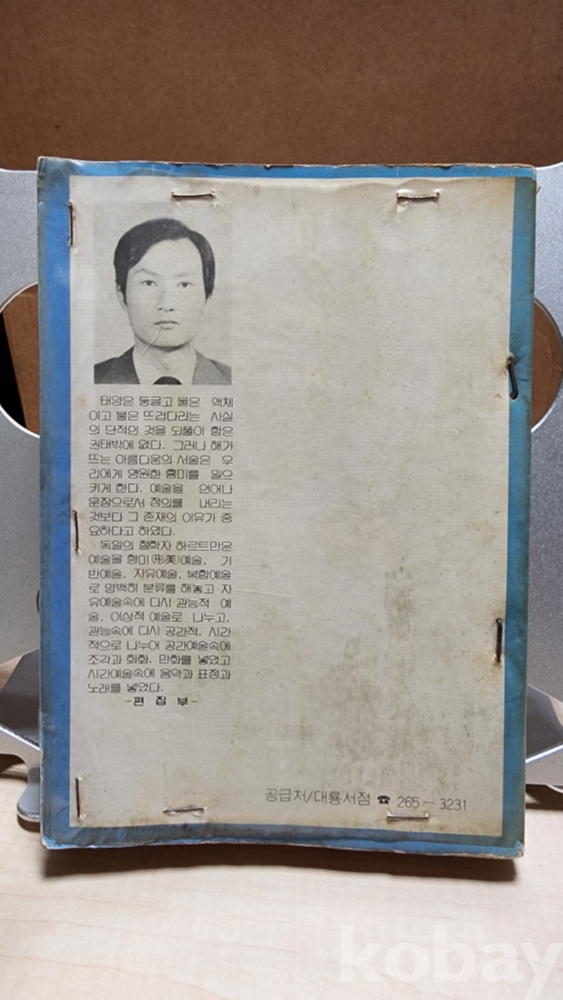 태양은 둥글고 물은 액체
이고 불은 뜨겁다라는 사실
의 단적의 것을 되풀이 함은
권태밖에 없다. 그러나 해가
뜨는 아름다움의 서술은 우
리에게 영원한 흥미를 일으
키게 한다. 예술을 언어나
문장으로서 정의를 내리는
것보다 그 존재의 이유가 중
요하다고 하였다.
독일의 철학자 하르트만은
예술을 형미(形美)예술, 기
반예술, 자유예술, 복합예술
로 명백히 분류를 해놓고 자
유예술속에 다시 관능적 예
술, 이상적 예술로 나누고,
관능속에 다시 공간적, 시간
적으로 나누어 공간예술속에
조각과 회화, 만화를 넣었고
시간예술속에 음악과 표정과
노래를 넣었다.
-편 집 부-
공급처/대룡서점 ☎ 265-3231
kobay